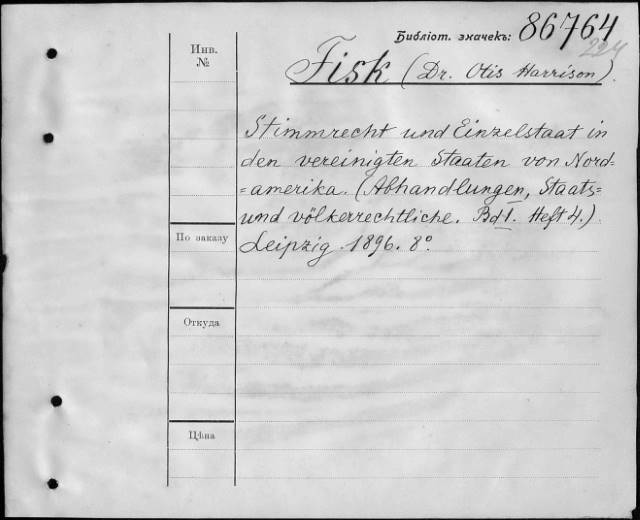 Библіот. значекъ: 86764
224
Инв.
№
Fisk (Dr. Otis Harrison).
Stimmrecht und Einzelstaat in
den vereinigten Staaten von Nord-
=amerika. (Abhandlungen, Staats=
und völkerrechtliche. Bd I. Heft 4.)
По заказу
Leipzig. 1896. 8°.
Откуда
Цѣна